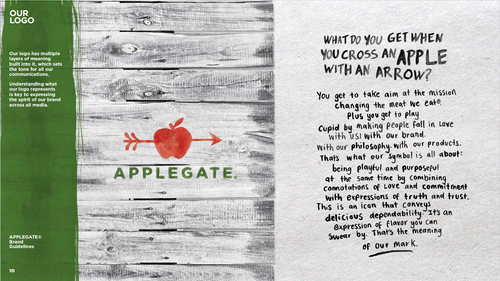 OUR
LOGO
Our logo has multiple
layers of meaning
built into it, which sets
the tone for all our
communications.
Understanding what
our logo represents
is key to expressing
the spirit of our brand
across all media.
APPLEGATE®
Brand
Guidelines
10
APPLEGATE®
WHAT DO YOU GET WHEN
YOU CROSS AN APPLE
WITH AN ARROW?
You get to take aim at the mission
changing the meat we eat®.
Plus you get to play
Cupid by making people fall in love
with US! With our brand.
With our philosophy. With our products.
Thats what our symbol is all about:
being playful and purposeful
at the same time by combining
connotations of love and commitment
with expressions of truth and trust.
This is an icon that conveys
delicious dependability. It's an
expression of flavor you can
swear by. That's the meaning
of our mark.